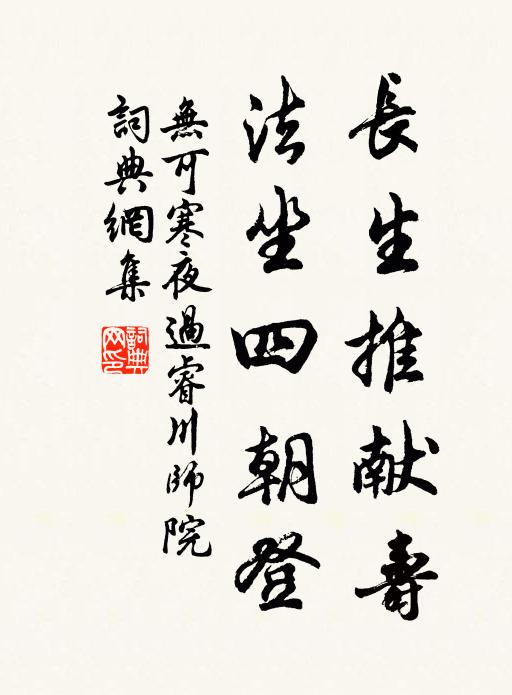 長生推献壽
法坐四朝登
無可寒夜過睿川師院
詞典網集
詞典網印